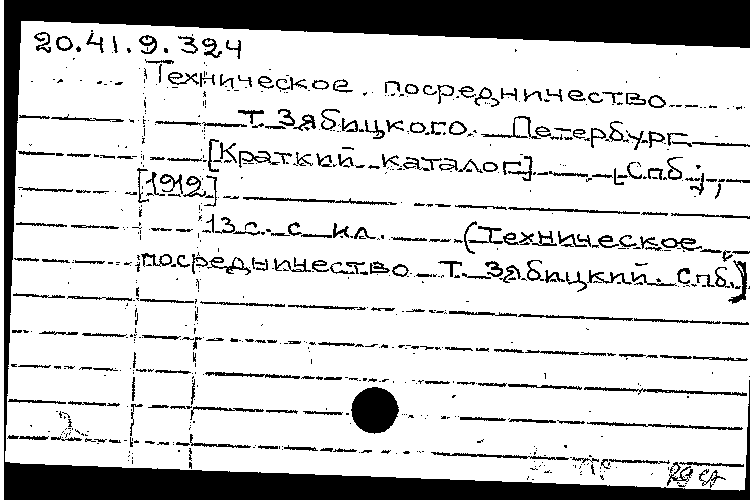 20.41.9.324
Техническое посредничество
Т. Зябицкого. Петербург.
[Краткий каталог] [Спб.],
[1912]
13 с. с ил. (Техническое
посредничество Т. Зябицкий. Спб.)